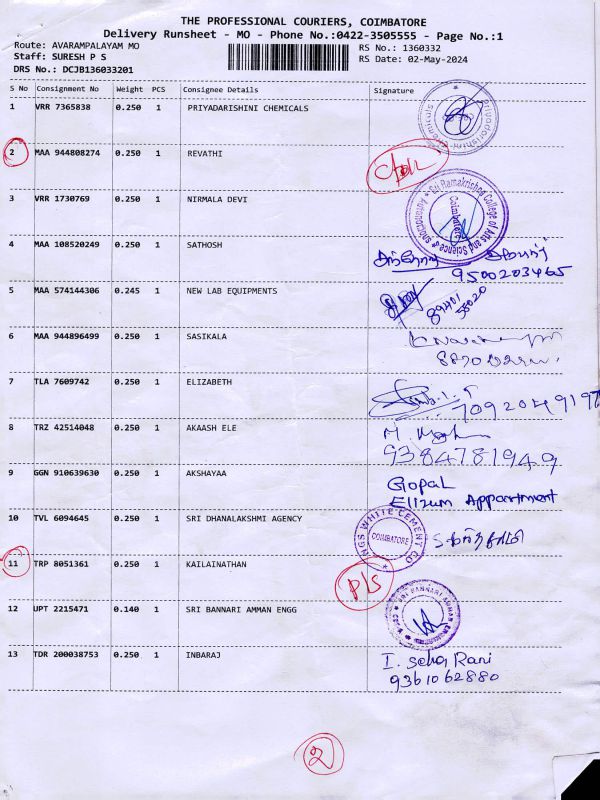 THE PROFESSIONAL COURIERS, COIMBATORE
Delivery Runsheet - MO - Phone No.:0422-3505555 - Page No.:1
Route: AVARAMPALAYAM MO
RS No.: 1360332
Staff: SURESH P S
RS Date: 02-May-2024
DRS No.: DCJB136033201
S No Consignment No Weight PCS Consignee Details Signature
1 VRR 7365838 0.250 1 PRIYADARISHINI CHEMICALS
2 MAA 944808274 0.250 1 REVATHI
3 VRR 1730769 0.250 1 NIRMALA DEVI
Sri Ramakrishna College of Arts and Science Autonomous Coimbatore
4 MAA 108520249 0.250 1 SATHOSH
9500203465
5 MAA 574144306 0.245 1 NEW LAB EQUIPMENTS
6 MAA 944896499 0.250 1 SASIKALA
7 TLA 7609742 0.250 1 ELIZABETH
8 TRZ 42514048 0.250 1 AKAASH ELE
9384781949
9 GGN 910639630 0.250 1 AKSHAYAA Gopal
Ellzum Appartment
10 TVL 6094645 0.250 1 SRI DHANALAKSHMI AGENCY
NGS WHITE CEMENT CO COIMBATORE
11 TRP 8051361 0.250 1 KAILAINATHAN
PLS
12 UPT 2215471 0.140 1 SRI BANNARI AMMAN ENGG
13 TDR 200038753 0.250 1 INBARAJ I. Selva Rani
9361062880
2